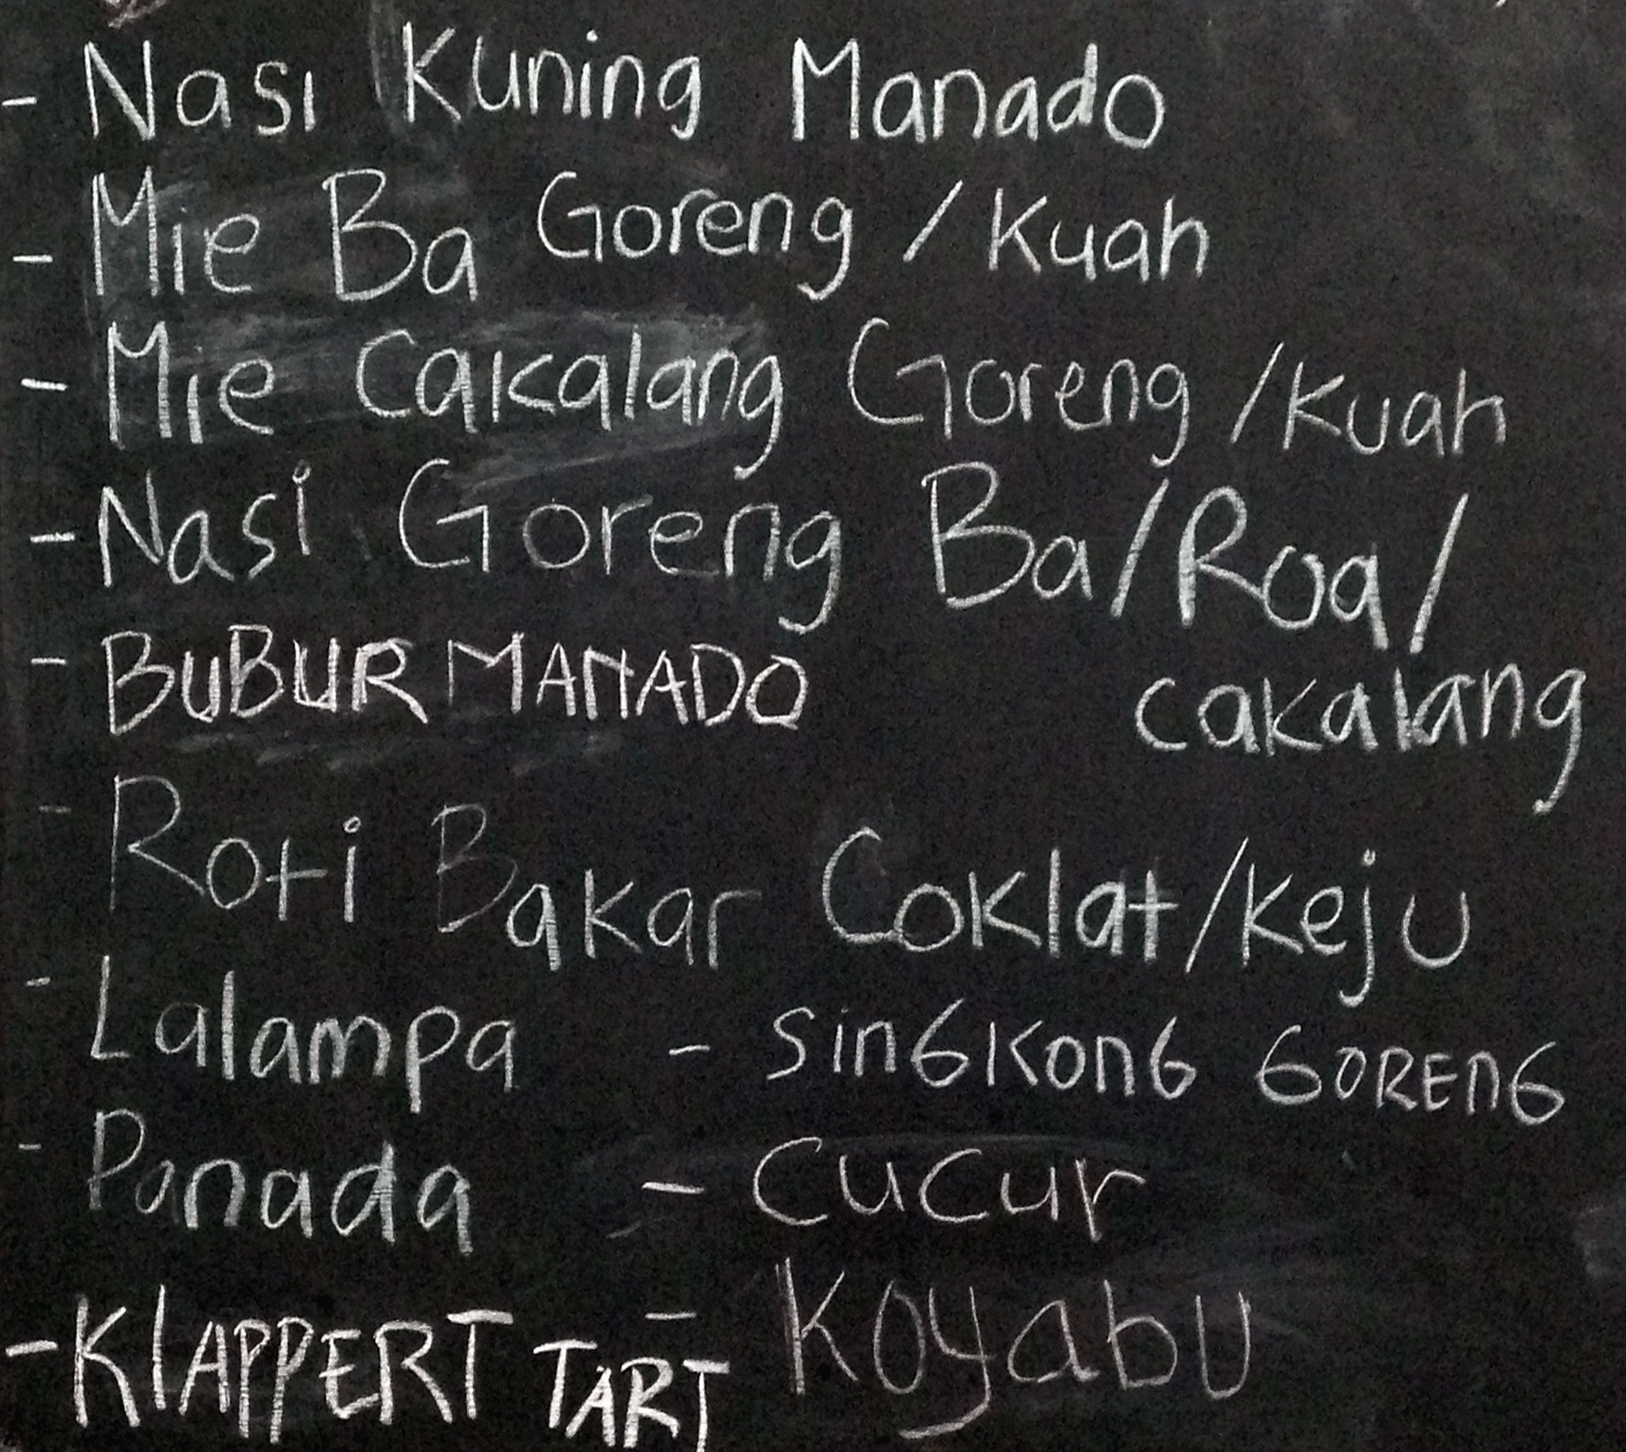 - Nasi Kuning Manado
- Mie Ba Goreng / Kuah
- Mie Cakalang Goreng / Kuah
- Nasi Goreng Ba / Roa /
cakalang
- BUBUR MANADO
- Roti Bakar Coklat / Keju
- Lalampa
- Panada
- KLAPPERT TART
- SinGKonG GORENG
- Cucur
- Koyabu